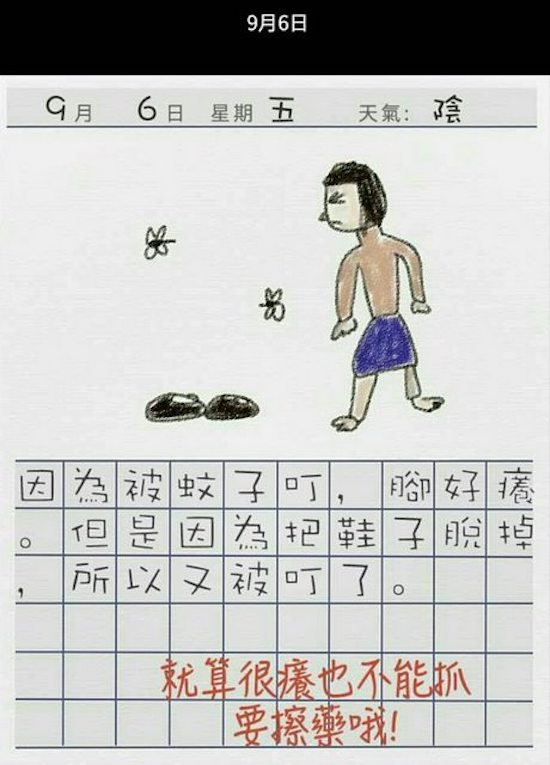 9月6日
9月 6日 星期五 天氣: 陰
因為被蚊子叮，腳好癢
。但是因為把鞋子脫掉
，所以又被叮了。
就算很癢也不能抓
要擦藥哦!